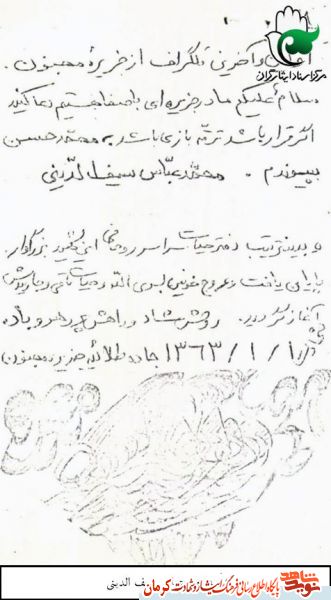 مرکز اسناد ایثارگران
و آخرین تلگراف از جزیرهٔ مجنون.
سلام علیکم ما در جزیره‌ای با صفا هستیم دعا کنید
اگر قرار باشد ترقه بازی باشد به محمد حسن
بپیوندم. محمد عباس سیف الدینی
و بدینترتیب دفتر حیات سراسر این شهید بزرگوار
پایان یافت و عروج خونین بسوی الله و حیات
آغاز گردید. روحش شاد و راهش پر رهرو باد.
۱۳۶۳/۱/۱ جاده طلائیه جزیره مجنون
یف الدینی
نوید شاهد
پایگاه اطلاع رسانی فرهنگ ایثار و شهادت کرمان